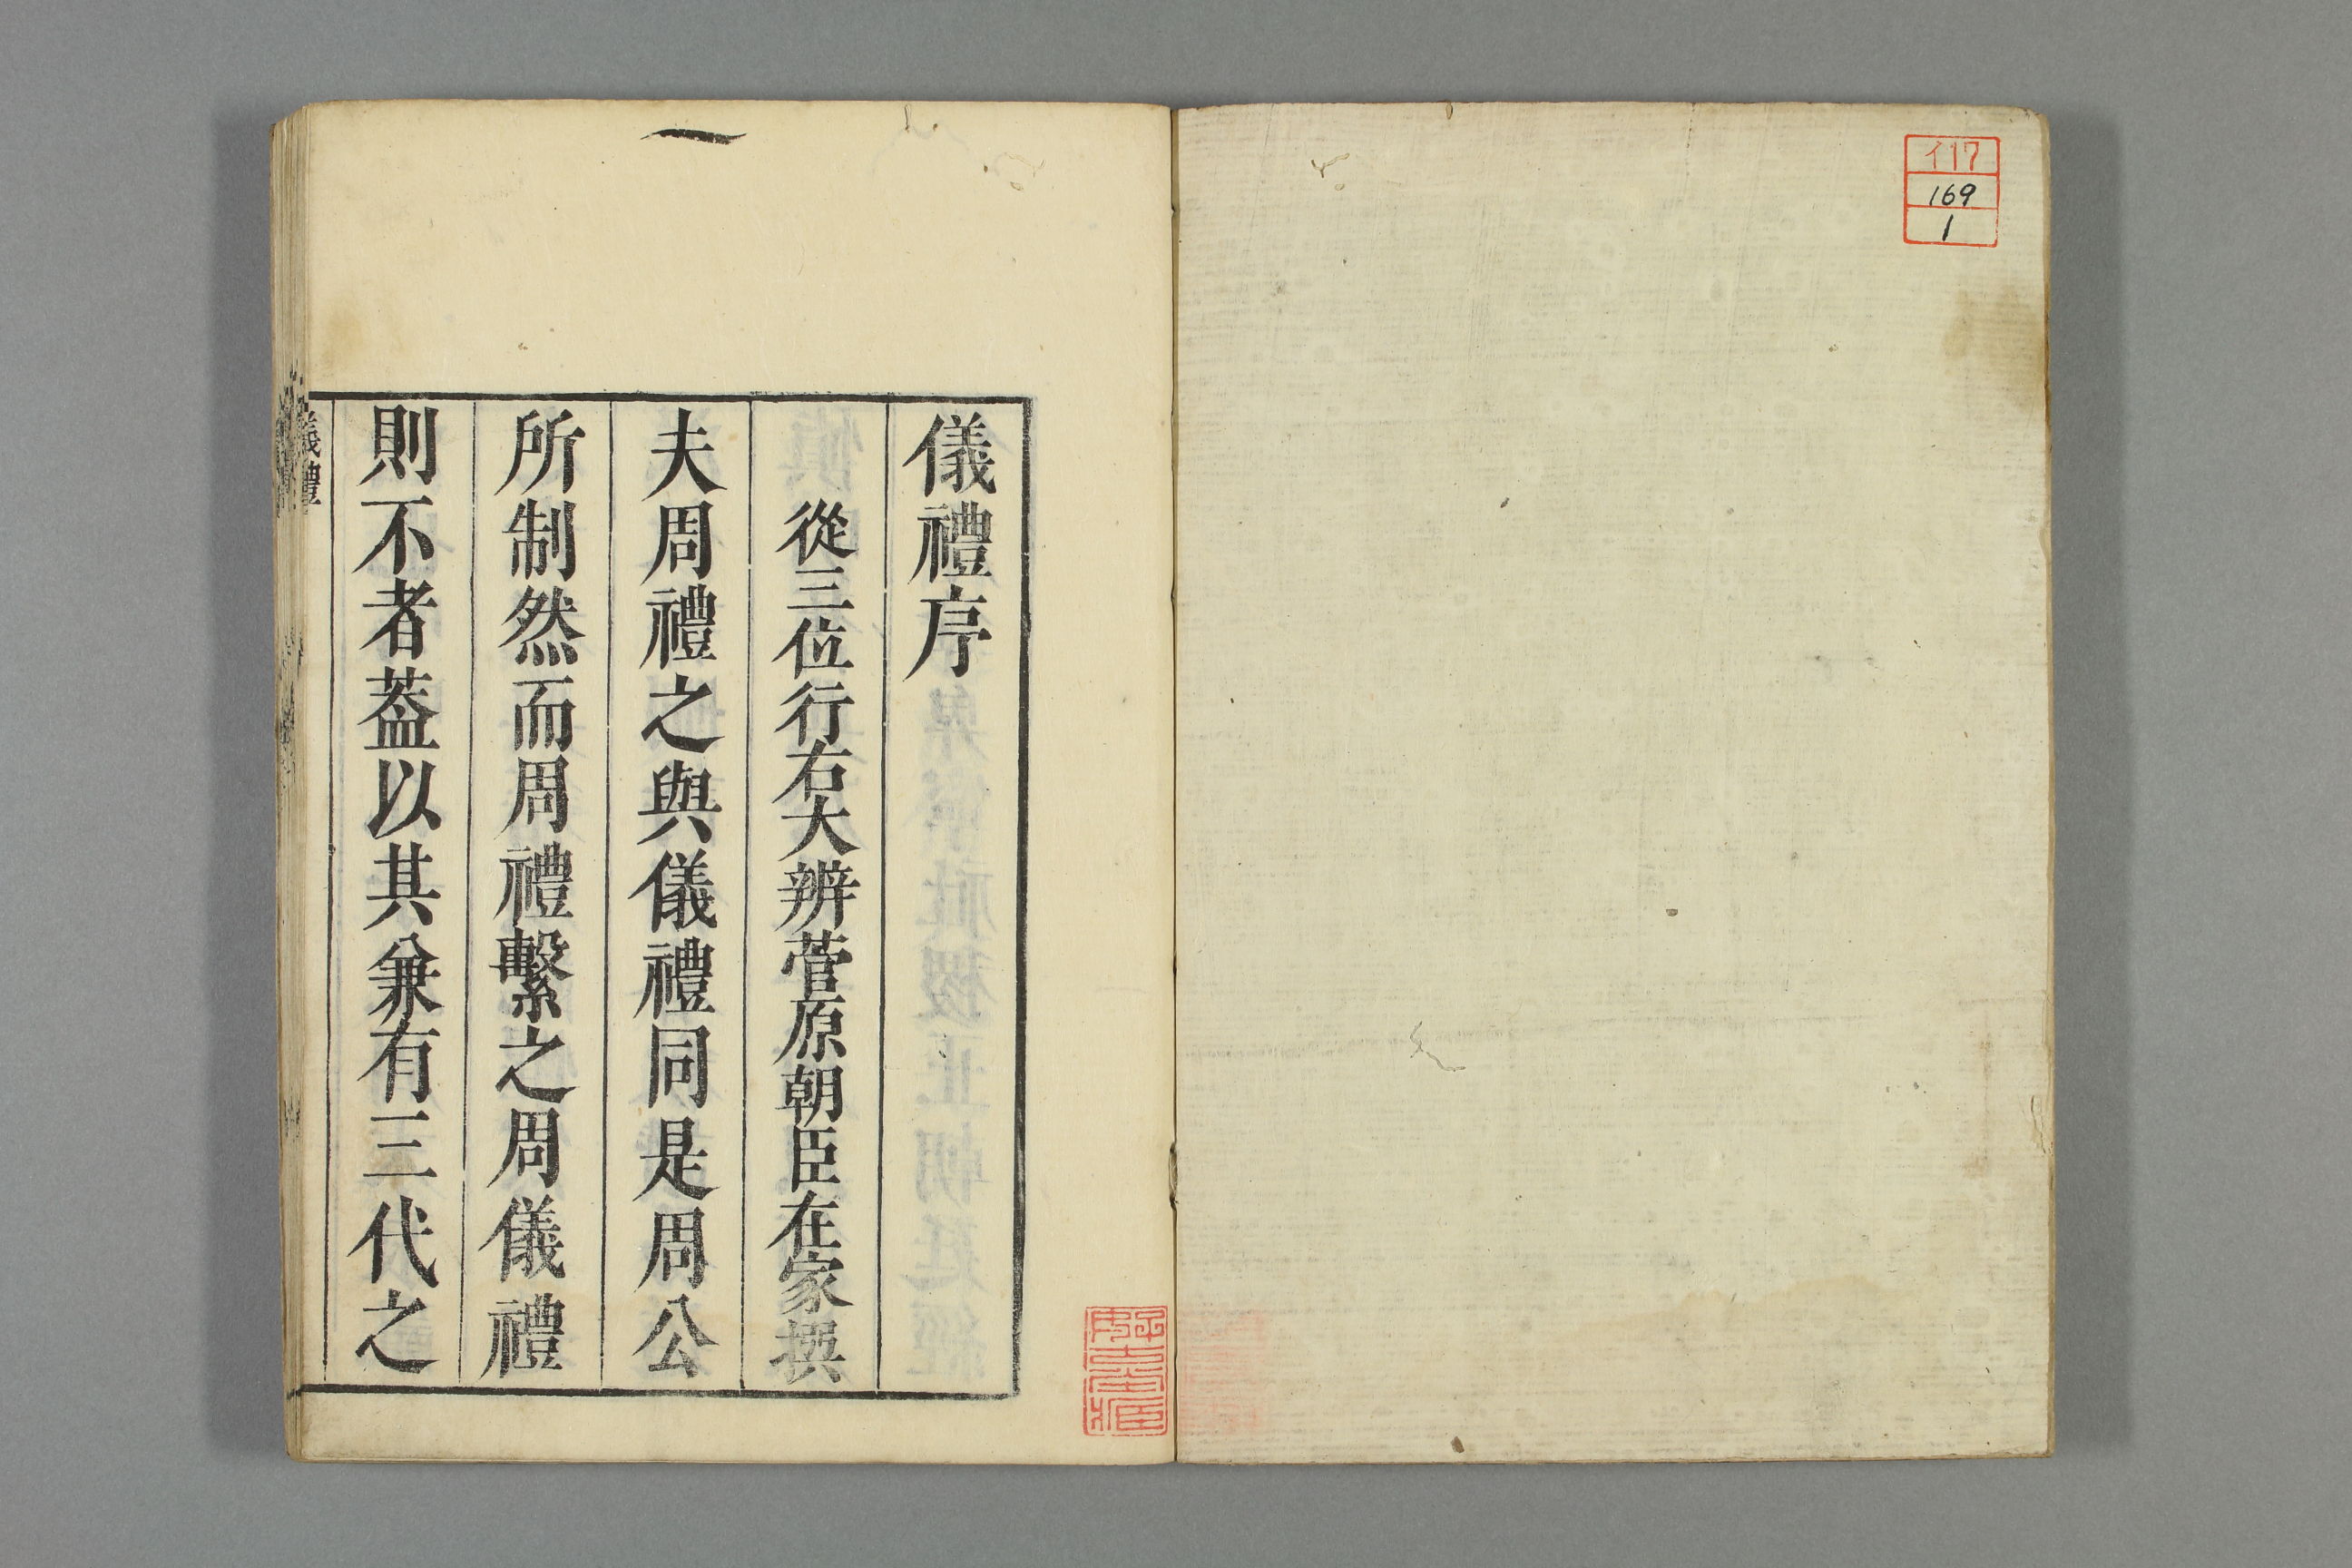 イ17
169
1
一
儀禮序
從三位行右大辨菅原朝臣在家撰
夫周禮之與儀禮同是周公
所制然而周禮繫之周儀禮
則不者葢以其兼有三代之
儀禮